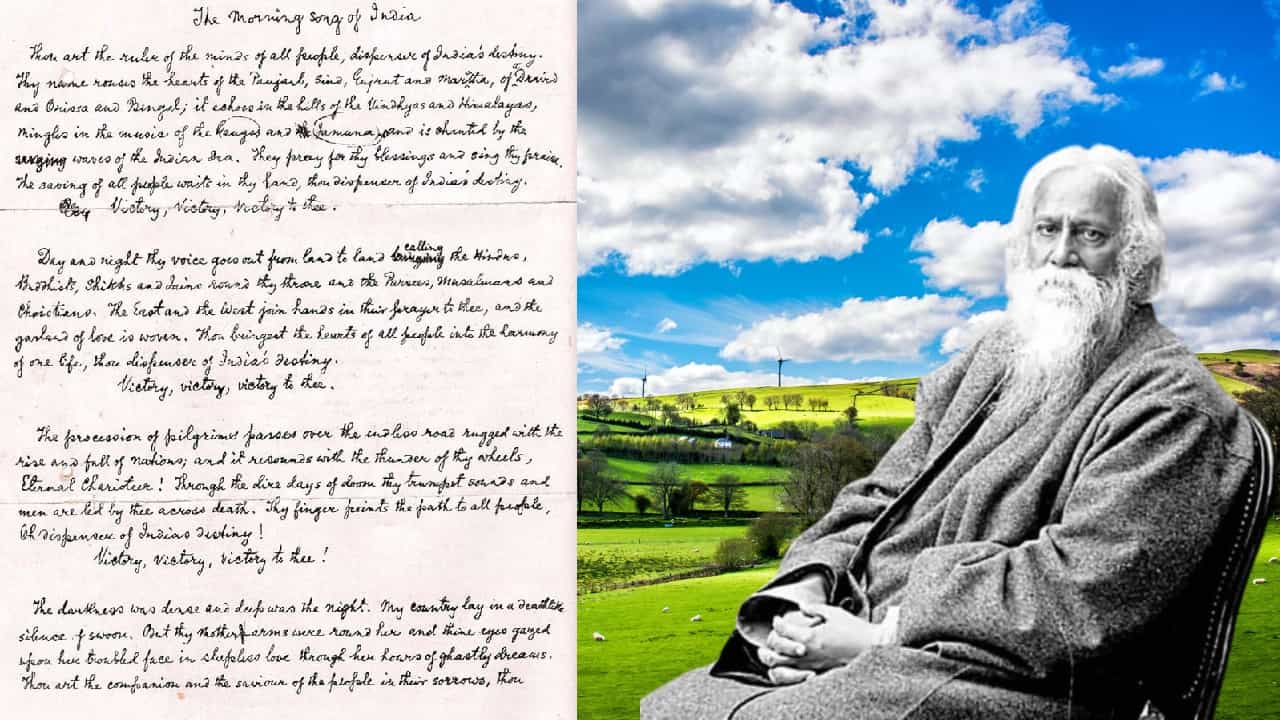 The Morning song of India
Thou art the ruler of the minds of all people, dispenser of India's destiny.
Thy name rouses the hearts of the Panjaub, Sind, Gujrat and Maratha, of Dravid
and Orissa and Bengal; it echoes in the hills of the Vindhyas and Himalayas,
mingles in the music of the and Jamuna and is chanted by the
waves of the Indian Sea. They pray for thy blessings and sing thy praise.
The saving of all people waits in thy hand, thou dispenser of India's destiny.
Victory, Victory, Victory to thee.
Day and night thy voice goes out from land to land calling the Hindus,
Buddhists, Shikhs and Jains round thy throne and the Parsees, Musalmans and
Christians. The East and the West join hands in their prayer to thee, and the
garland of love is woven. Thou bringest the hearts of all people into the harmony
of one life, thou dispenser of India's destiny.
Victory, victory, victory to thee.
The procession of pilgrims passes over the endless road rugged with the
rise and fall of nations; and it resounds with the thunder of thy wheels,
Eternal Charioteer! Through the dire days of doom thy trumpet sounds and
men are led by thee across death. Thy finger points the path to all people,
Oh dispenser of India's destiny!
Victory, victory, victory to thee!
The darkness was dense and deep was the night. My country lay in a deathlike
silence of swoon. But thy mother arms were round her and thine eyes gazed
upon her troubled face in sleepless love through her hours of ghastly dreams.
Thou art the companion and the saviour of the people in their sorrows, thou